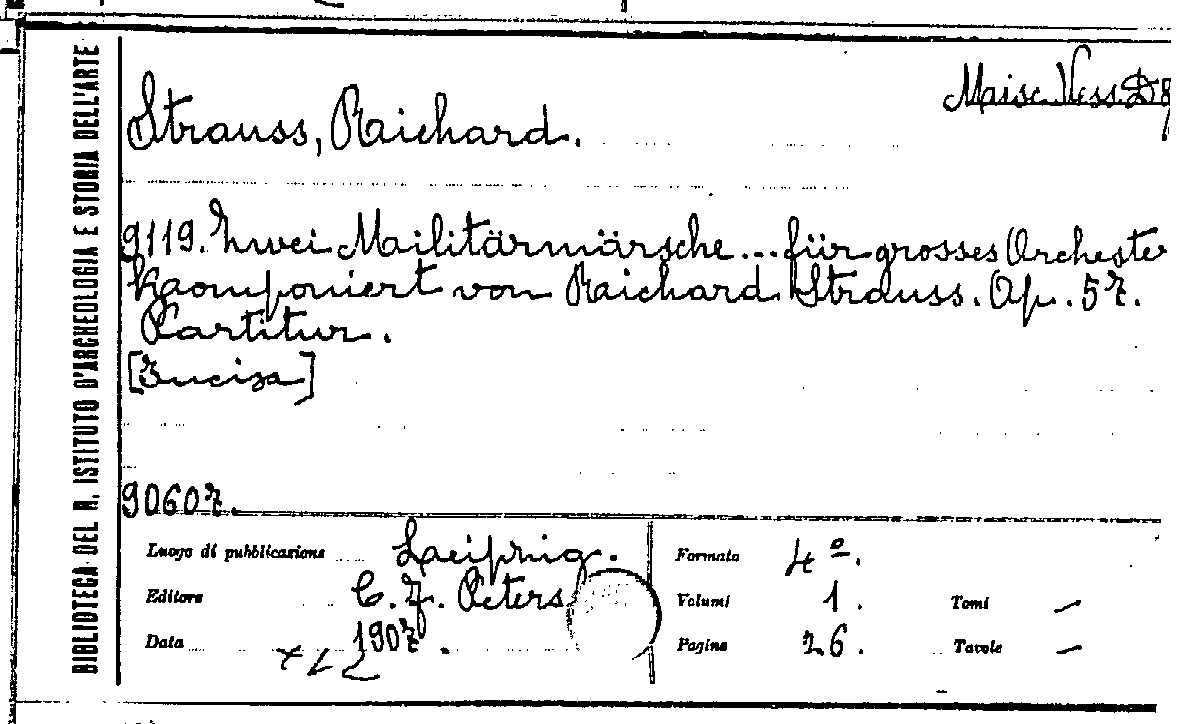 BIBLIOTECA DEL R. ISTITUTO D'ARCHEOLOGIA E STORIA DELL'ARTE
Misc. Vess. D
Strauss, Richard.
9119. Zwei Militärmärsche... für grosses Orchester
komponiert von Richard Strauss. Op. 57.
Partitur.
[Incisa]
90607.
Luogo di pubblicazione Leipzig.
Editore C. F. Peters
Data 1907.
Formato 4º.
Volumi 1. Tomi –
Pagine 26. Tavole –